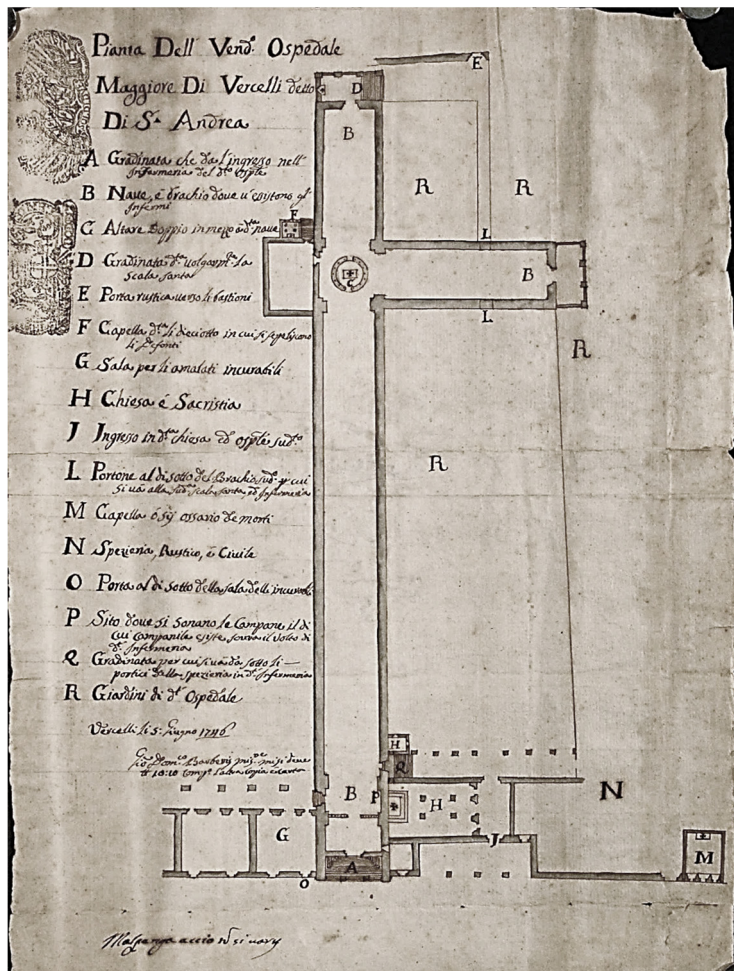 Pianta Dell' Vend.e Ospedale
Maggiore Di Vercelli detto
Di S.t Andrea
A Gradinata che dà l'ingresso nell'
Infermeria del d.to Osple
B Naue, è brachio doue u'esistono gl'
Infermi
C Altare Doppio in mezo à d.ta naue
D Gradinata d.ta uolgarm.te la
Scala santa
E Porta rustica uerso li bastioni
F Capella d.ta li dieciotto in cui si sepeliscono
li defonti
G Sala per li amalati incurabili
H Chiesa é Sacristia
J Ingresso in d.ta chiesa ed osple sud.o
L Portone al di sotto del Brachio sud.o per cui
si uà alla sud.a scala santa ed Infermeria
M Capella ò sij ossario de morti
N Spezieria, Rustico, è Ciuile
O Porta al di sotto della sala delli incurabli
P Sito doue si sonano le Campane il di
cui Campanile esiste soura il uolto di
d.a Infermeria
Q Gradinata per cui si uà da sotto li
portici della spezieria in d.a Infermeria
R Giardini di d.o Ospedale
Vercelli li 5 Giugno 1746
E
D
B
R
R
F
L
C
B
L
R
R
H
Q
B
P
H
N
G
J
M
A
O